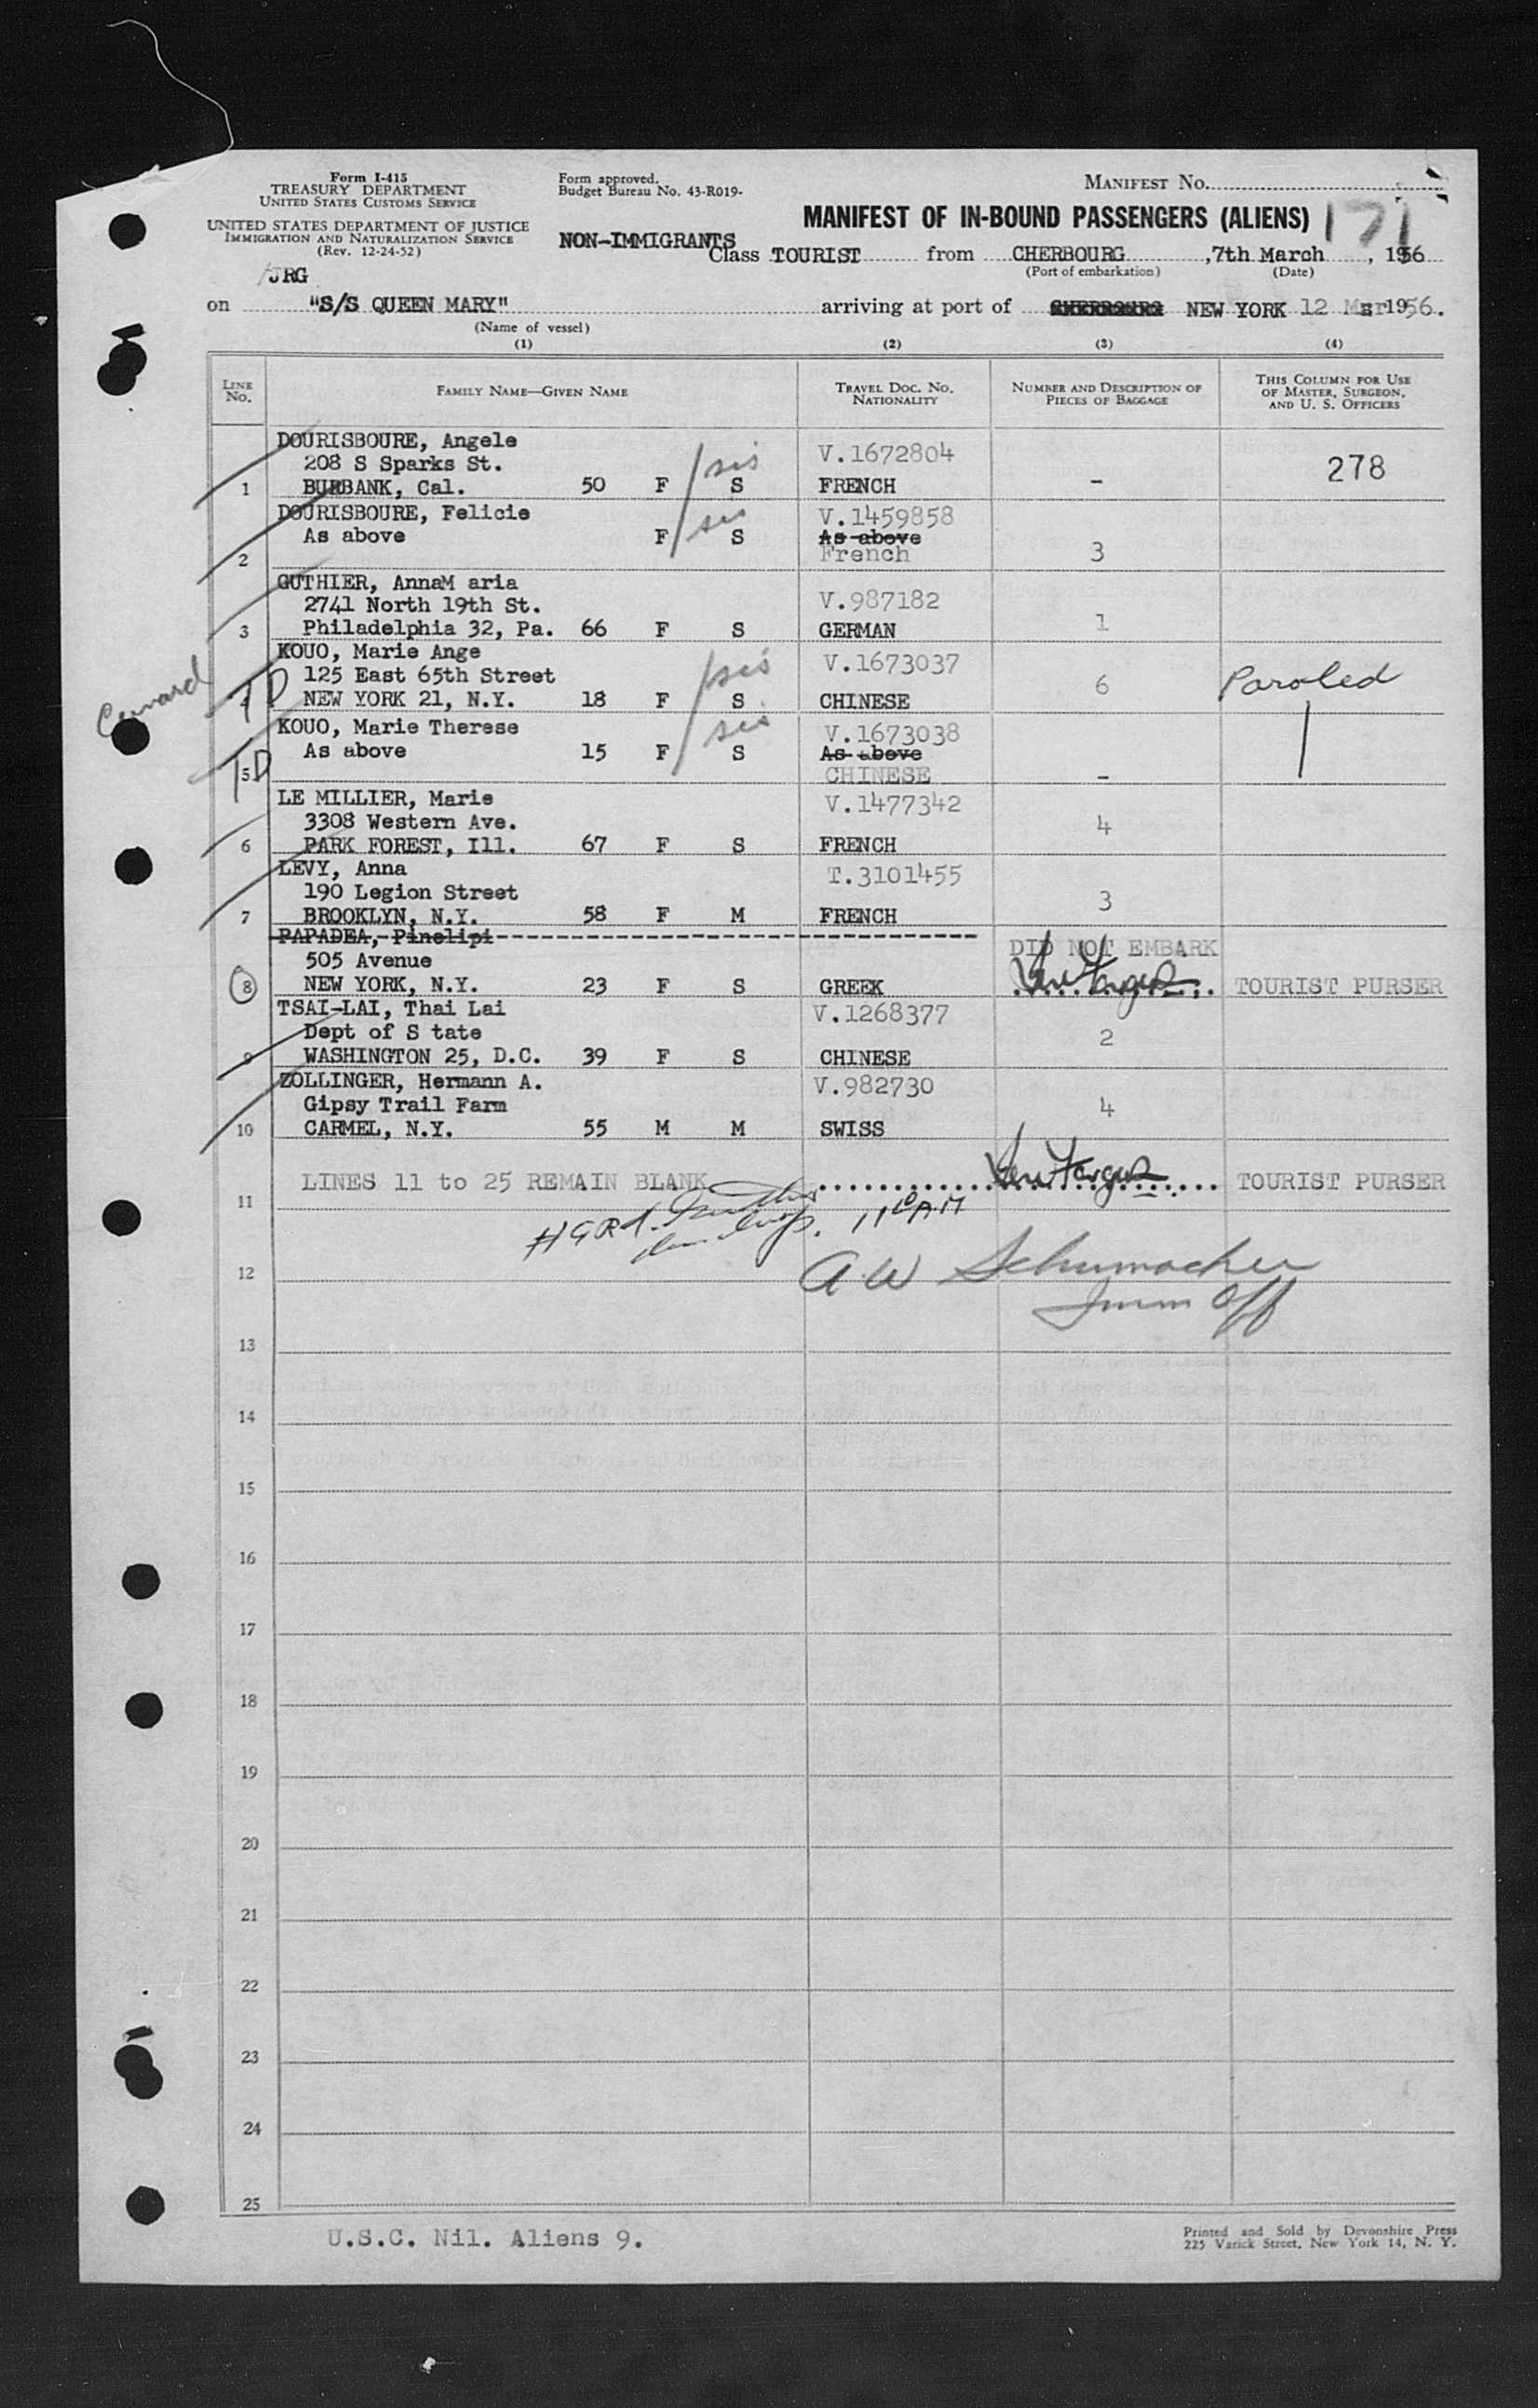 Form I-415
TREASURY DEPARTMENT
UNITED STATES CUSTOMS SERVICE
UNITED STATES DEPARTMENT OF JUSTICE
IMMIGRATION AND NATURALIZATION SERVICE
(Rev. 12-24-52)
Form approved.
Budget Bureau No. 43-R019-
MANIFEST NO.
MANIFEST OF IN-BOUND PASSENGERS (ALIENS) 171
NON-IMMIGRANTS Class TOURIST from CHERBOURG, 7th March, 1956
(Port of embarkation) (Date)
JRG
on "S/S QUEEN MARY" arriving at port of NEW YORK 12 Mar 1956.
(Name of vessel)
(1) (2) (3) (4)
LINE NO. FAMILY NAME—GIVEN NAME TRAVEL DOC. NO. NATIONALITY NUMBER AND DESCRIPTION OF PIECES OF BAGGAGE THIS COLUMN FOR USE OF MASTER, SURGEON, AND U. S. OFFICERS
DOURISBOURE, Angele
208 S Sparks St. sis V.1672804 278
1 BURBANK, Cal. 50 F S FRENCH -
DOURISBOURE, Felicie sis V.1459858
As above F S As above
2 French 3
GUTHIER, AnnaM aria
2741 North 19th St. V.987182
3 Philadelphia 32, Pa. 66 F S GERMAN 1
KOUO, Marie Ange
125 East 65th Street sis V.1673037 Paroled
4 TD NEW YORK 21, N.Y. 18 F S CHINESE 6
KOUO, Marie Therese sis V.1673038
As above 15 F S As above
5 TD CHINESE -
LE MILLIER, Marie V.1477342
3308 Western Ave. 4
6 PARK FOREST, Ill. 67 F S FRENCH
LEVY, Anna T.3101455
190 Legion Street 3
7 BROOKLYN, N.Y. 58 F M FRENCH
PAPADEA, Pinelipi
505 Avenue DID NOT EMBARK
8 NEW YORK, N.Y. 23 F S GREEK TOURIST PURSER
TSAI-LAI, Thai Lai V.1268377
Dept of S tate 2
9 WASHINGTON 25, D.C. 39 F S CHINESE
ZOLLINGER, Hermann A. V.982730
Gipsy Trail Farm 4
10 CARMEL, N.Y. 55 M M SWISS
LINES 11 to 25 REMAIN BLANK TOURIST PURSER
11
A W Schumacher
12
Imm Off
13
14
15
16
17
18
19
20
21
22
23
24
25
U.S.C. Nil. Aliens 9.
Printed and Sold by Devonshire Press
225 Varick Street, New York 14, N. Y.